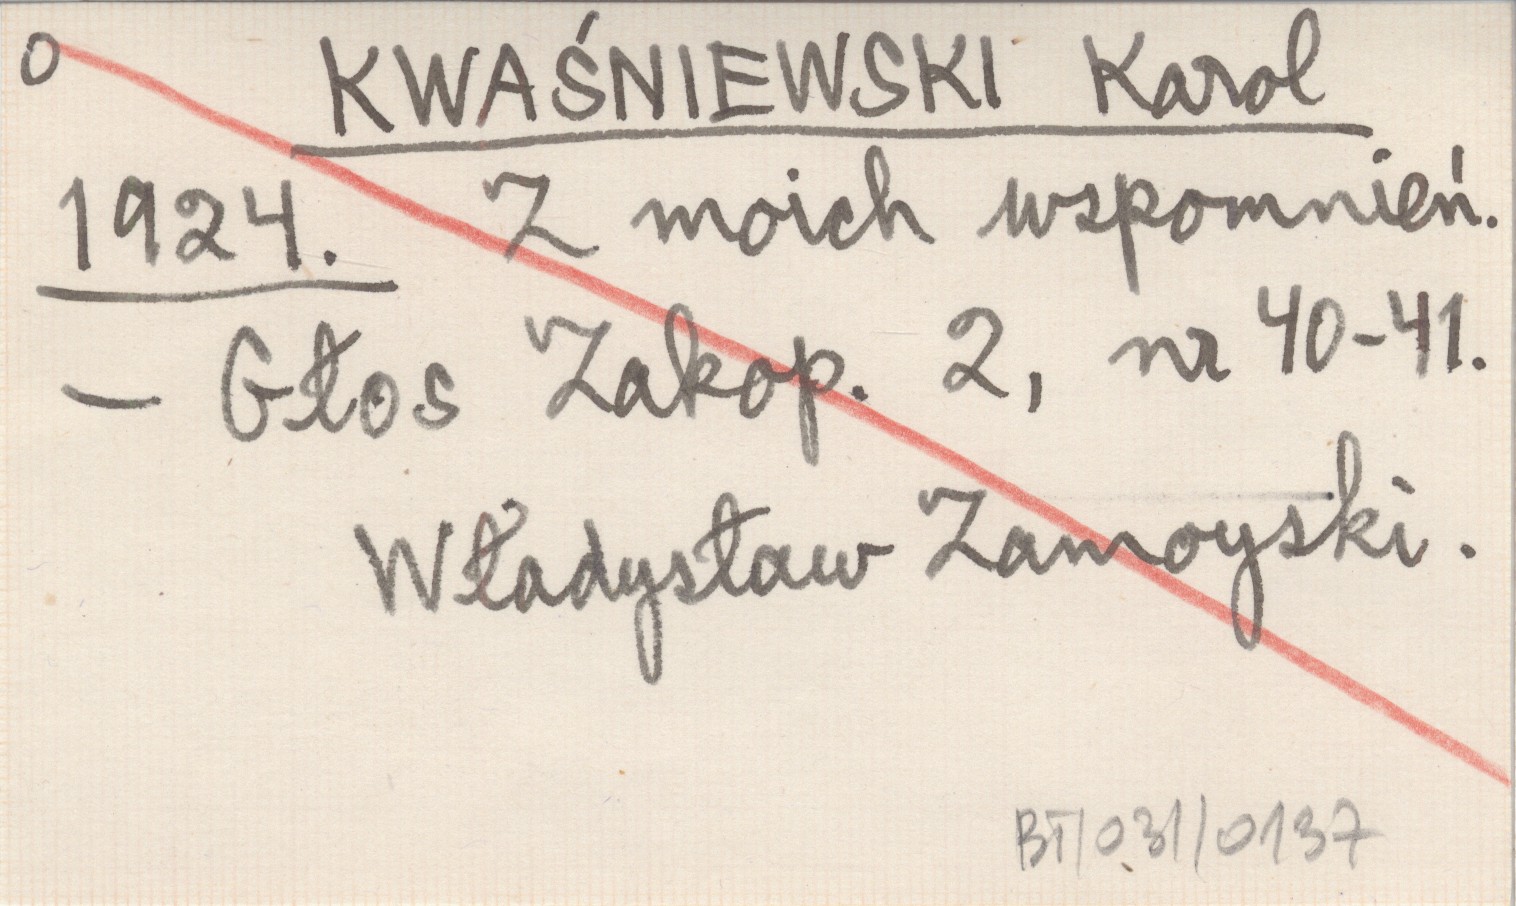 o KWAŚNIEWSKI Karol
1924. Z moich wspomnień.
– Głos Zakop. 2, nr 40-41.
Władysław Zamoyski.
BT/031/0137